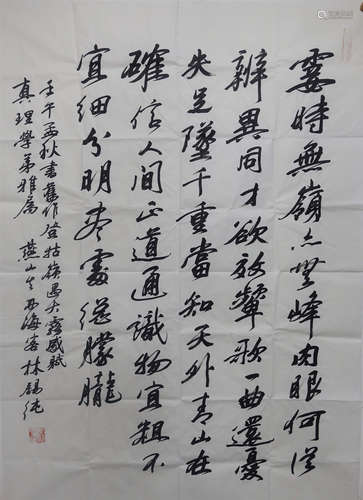 霎時無嶺亦無峰肉眼何從
辨異同才欲放聲歌一曲還憂
失足墜千重當知天外青山在
確信人間正道通識物宜粗不
宜細分明處總朦朧
壬午孟秋書舊作登牯嶺遇大霧感賦
真理學弟雅屬 燕山生西海客林錫純